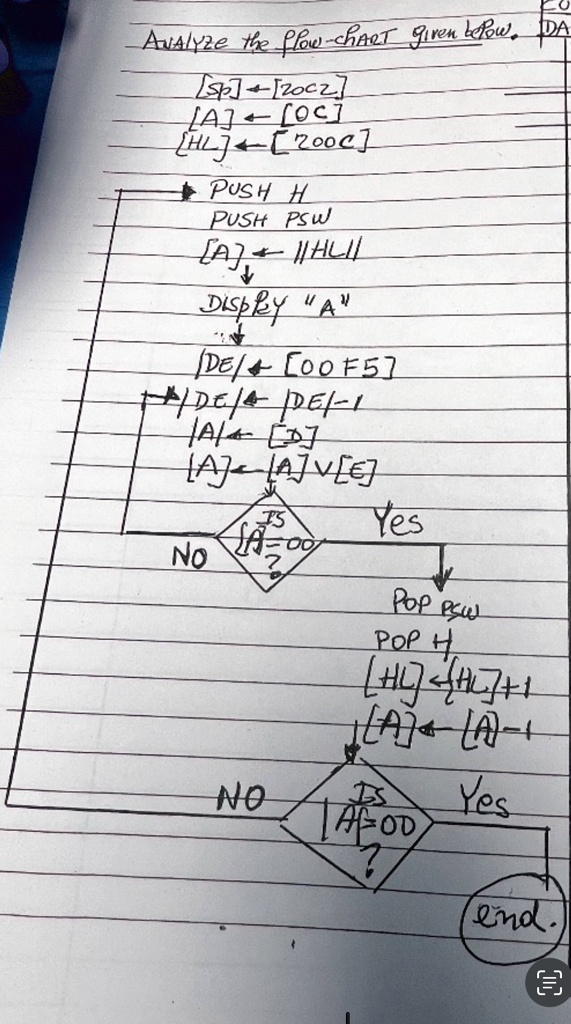 CO
DA
Analyze the flow-chart given below.
[SP] ← [20C2]
[A] ← [0C]
[HL] ← [200C]
PUSH H
PUSH PSW
[A] ← ||HL||
Display "A"
|DE| ← [00F5]
|DE| ← |DE|-1
|A| ← [D]
[A] ← [A] V [E]
Is
[A]=00
?
Yes
NO
POP PSW
POP H
[HL] ← [HL]+1
[A] ← [A]-1
NO
Is
|A|=00
?
Yes
end.